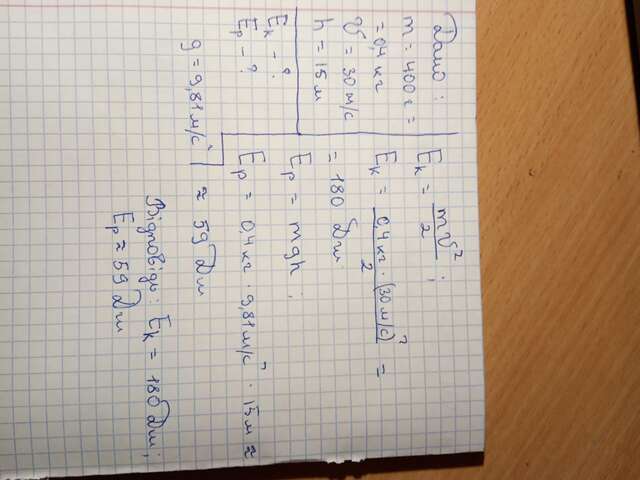 Дано:
m = 400 г =
= 0,4 кг
V = 30 м/с
h = 15 м
Eк - ?
Eр - ?
g = 9,81 м/с²
Eк = mV²/2 ;
Eк = 0,4 кг · (30 м/с)²/2 =
= 180 Дж;
Eр = mgh;
Eр = 0,4 кг · 9,81 м/с² · 15 м ≈
≈ 59 Дж
Відповідь: Eк = 180 Дж;
Eр ≈ 59 Дж